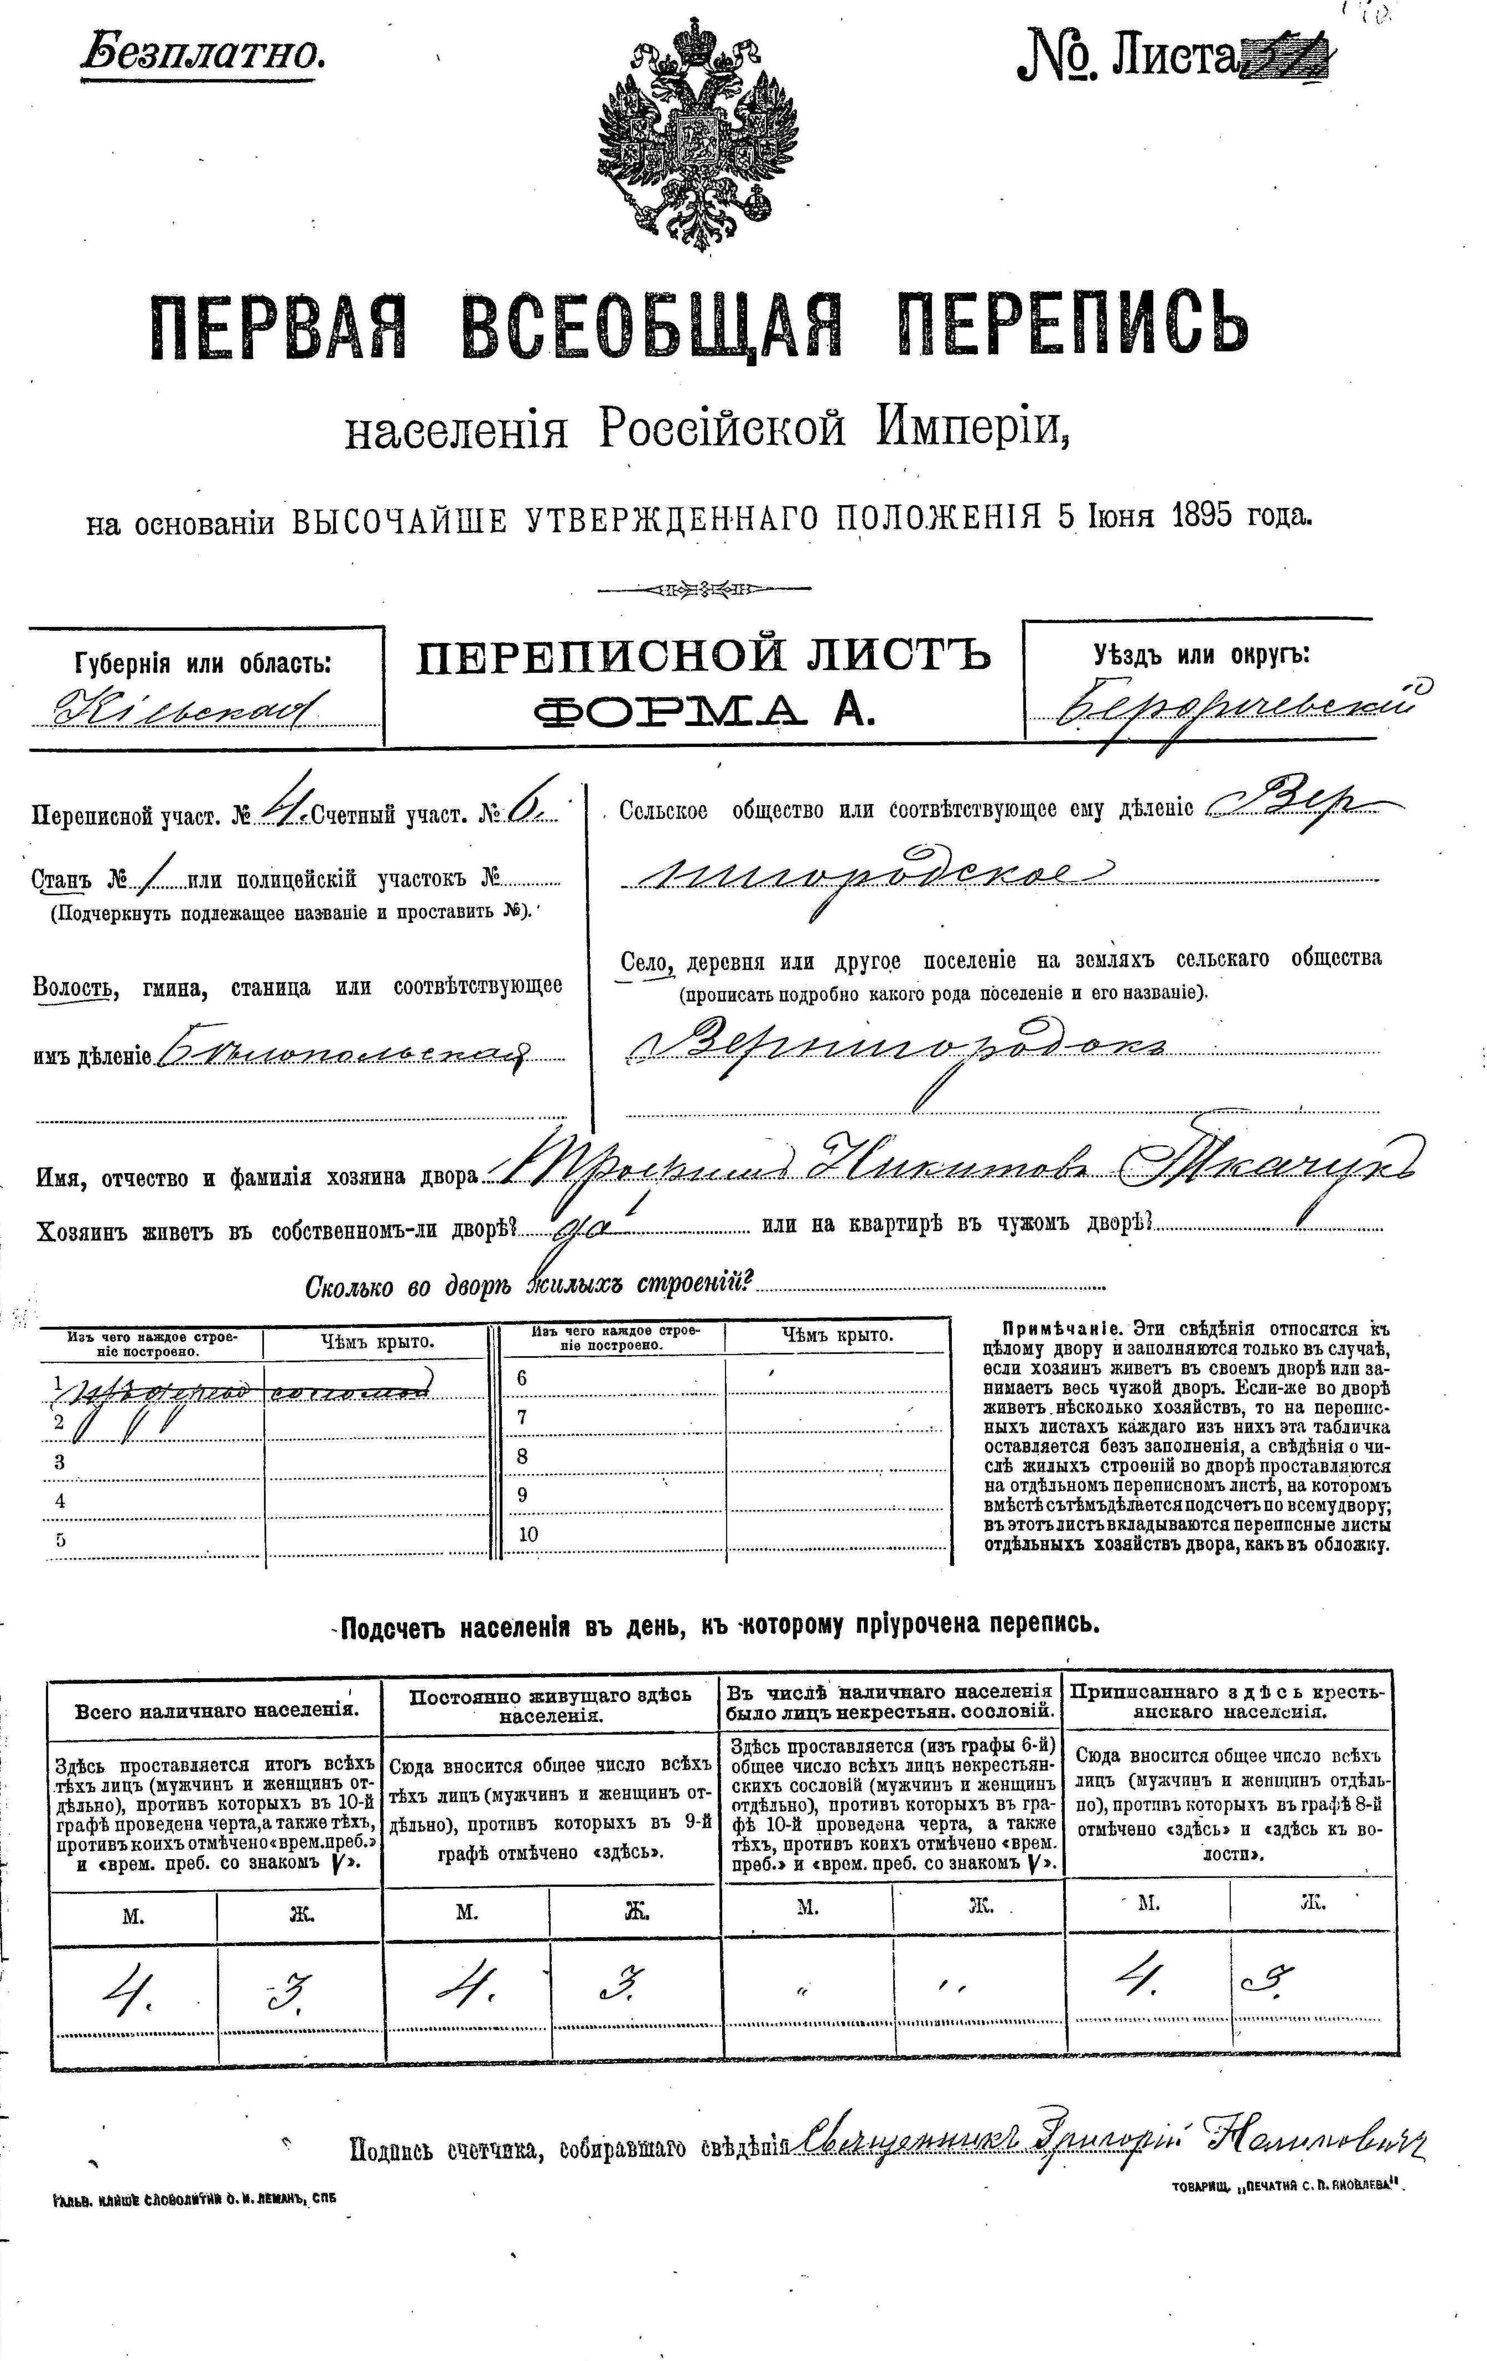 Безплатно.
№. Листа 51
ПЕРВАЯ ВСЕОБЩАЯ ПЕРЕПИСЬ
населенія Россійской Имперіи,
на основаніи ВЫСОЧАЙШЕ УТВЕРЖДЕННАГО ПОЛОЖЕНІЯ 5 Іюня 1895 года.
Губернія или область:
Кіевская
ПЕРЕПИСНОЙ ЛИСТЪ
ФОРМА А.
Уѣздъ или округъ:
Бердичевскій
Переписной участ. № 4. Счетный участ. № 6.
Станъ № 1 или полицейскій участокъ №
(Подчеркнуть подлежащее названіе и проставить №).
Волость, гмина, станица или соотвѣтствующее
имъ дѣленіе Бѣлопольская
Сельское общество или соотвѣтствующее ему дѣленіе Вер
нигородское
Село, деревня или другое поселеніе на земляхъ сельскаго общества
(прописать подробно какого рода поселеніе и его названіе).
Вернигородокъ
Имя, отчество и фамилія хозяина двора Трофимъ Никитовъ Ткачукъ
Хозяинъ живетъ въ собственномъ-ли дворѣ? да или на квартирѣ въ чужомъ дворѣ?
Сколько во дворѣ жилыхъ строеній?
Изъ чего каждое строе-
ніе построено.
Чѣмъ крыто.
Изъ чего каждое строе-
ніе построено.
Чѣмъ крыто.
1 соломой
2
3
4
5
6
7
8
9
10
Примѣчаніе. Эти свѣдѣнія относятся къ
цѣлому двору и заполняются только въ случаѣ,
если хозяинъ живетъ въ своемъ дворѣ или за-
нимаетъ весь чужой дворъ. Если-же во дворѣ
живетъ нѣсколько хозяйствъ, то на перепис-
ныхъ листахъ каждаго изъ нихъ эта табличка
оставляется безъ заполненія, а свѣдѣнія о чи-
слѣ жилыхъ строеній во дворѣ проставляются
на отдѣльномъ переписномъ листѣ, на которомъ
вмѣстѣ съ тѣмъ дѣлается подсчетъ по всему двору;
въ этотъ листъ вкладываются переписные листы
отдѣльныхъ хозяйствъ двора, какъ въ обложку.
Подсчетъ населенія въ день, къ которому пріурочена перепись.
Всего наличнаго населенія.
Здѣсь проставляется итогъ всѣхъ
тѣхъ лицъ (мужчинъ и женщинъ от-
дѣльно), противъ которыхъ въ 10-й
графѣ проведена черта, а также тѣхъ,
противъ коихъ отмѣчено «врем. преб.»
и «врем. преб. со знакомъ V».
Постоянно живущаго здѣсь
населенія.
Сюда вносится общее число всѣхъ
тѣхъ лицъ (мужчинъ и женщинъ от-
дѣльно), противъ которыхъ въ 9-й
графѣ отмѣчено «здѣсь».
Въ числѣ наличнаго населенія
было лицъ некрестьян. сословій.
Здѣсь проставляется (изъ графы 6-й)
общее число всѣхъ лицъ некрестьян-
скихъ сословій (мужчинъ и женщинъ
отдѣльно), противъ которыхъ въ гра-
фѣ 10-й проведена черта, а также
тѣхъ, противъ коихъ отмѣчено «врем.
преб.» и «врем. преб. со знакомъ V».
Приписаннаго здѣсь кресть-
янскаго населенія.
Сюда вносится общее число всѣхъ
лицъ (мужчинъ и женщинъ отдѣль-
но), противъ которыхъ въ графѣ 8-й
отмѣчено «здѣсь» и «здѣсь къ во-
лости».
М. Ж. М. Ж. М. Ж. М. Ж.
4. 3. 4. 3. " " 4. 3.
Подпись счетчика, собиравшаго свѣдѣнія Священникъ Григорій
ГАЛЬВ. КЛИШЕ СЛОВОЛИТНИ О. И. ЛЕМАНЪ, СПБ
ТОВАРИЩ. „ПЕЧАТНЯ С. П. ЯКОВЛЕВА".